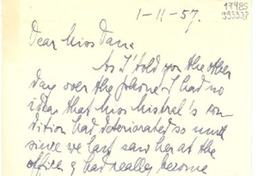 17985
333337
1-11-57.
Dear Miss Dana
As I told you the other
day over the phone I had no
idea that Miss Mistral's con
dition had deteriorated so much
since we last saw her at the
office & had really become